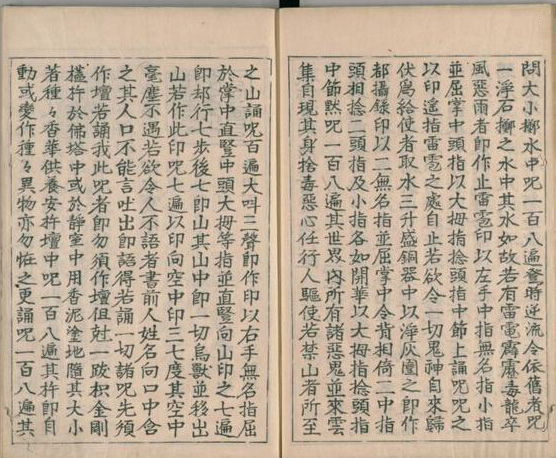 問大小擲水中呪一百八遍登時逆流令依舊者呪
一浮石擲之水中其水如故若有雷電霹靂毒龍卒
風惡雨者即作止雷雹印以左手中指無名指小指
並屈掌中頭指以大拇指捻頭指中節上誦呪呪之
以印遙指雷雹之處自止若欲令一切鬼神自來歸
伏爲給使者取水三升盛銅器中以淨灰圍之即作
都攝錄印以二無名指並屈掌中令背相倚二中指
頭相捻二頭指及小指各如開華以大拇指捻頭指
中節黙呪一百八遍其世界內所有諸惡鬼並來雲
集自現其身捨毒惡心任行人驅使若禁山者所至
之山誦呪百遍大叫三聲即作印以右手無名指屈
於掌中直竪中頭大拇等指並直竪向山印之七遍
即却行七步後七即山其山中即一切鳥獸並移出
山若作此印呪七遍以印向空中印三七度其空中
毫塵不遇若欲令人不語者書前人姓名向口中含
之其人口不能言吐出即語得若誦一切諸呪先須
作壇若誦我此呪者即勿須作壇但尅一跋枳金剛
橽杵於佛塔中或於靜室中用香泥塗地隨其大小
著種々香華供養安杵壇中呪一百八遍其杵即自
動或變作種々異物亦勿恠之更誦呪一百八遍其